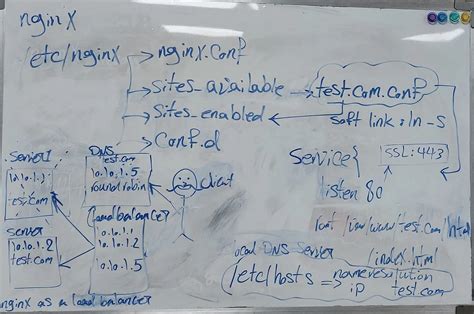 nginx
/etc/nginx
nginx.conf
Sites_available
test.com.conf
Sites_enabled
soft link: ln -s
Conf.d
Server1
10.10.1.1
test.com
DNS
test.com
10.10.1.5
round robin
client
Service{
SSL:443
listen 80
/index.html
Server
10.10.1.2
test.com
Load balancer
10.10.1.1
10.10.1.2
10.10.1.5
local DNS Server
/etc/hosts => name resolution
ip test.com
nginx as a load balancer